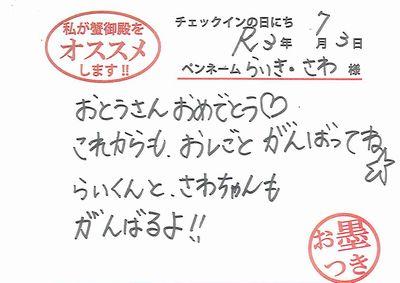 私が蟹御殿を
オススメ
します!!
チェックインの日にち
R3年 7月 3日
ペンネーム らいき・さわ 様
おとうさん おめでとう♡
これからも、おしごと がんばってね☆
らいくんと、さわちゃんも
がんばるよ!!
お墨
つき